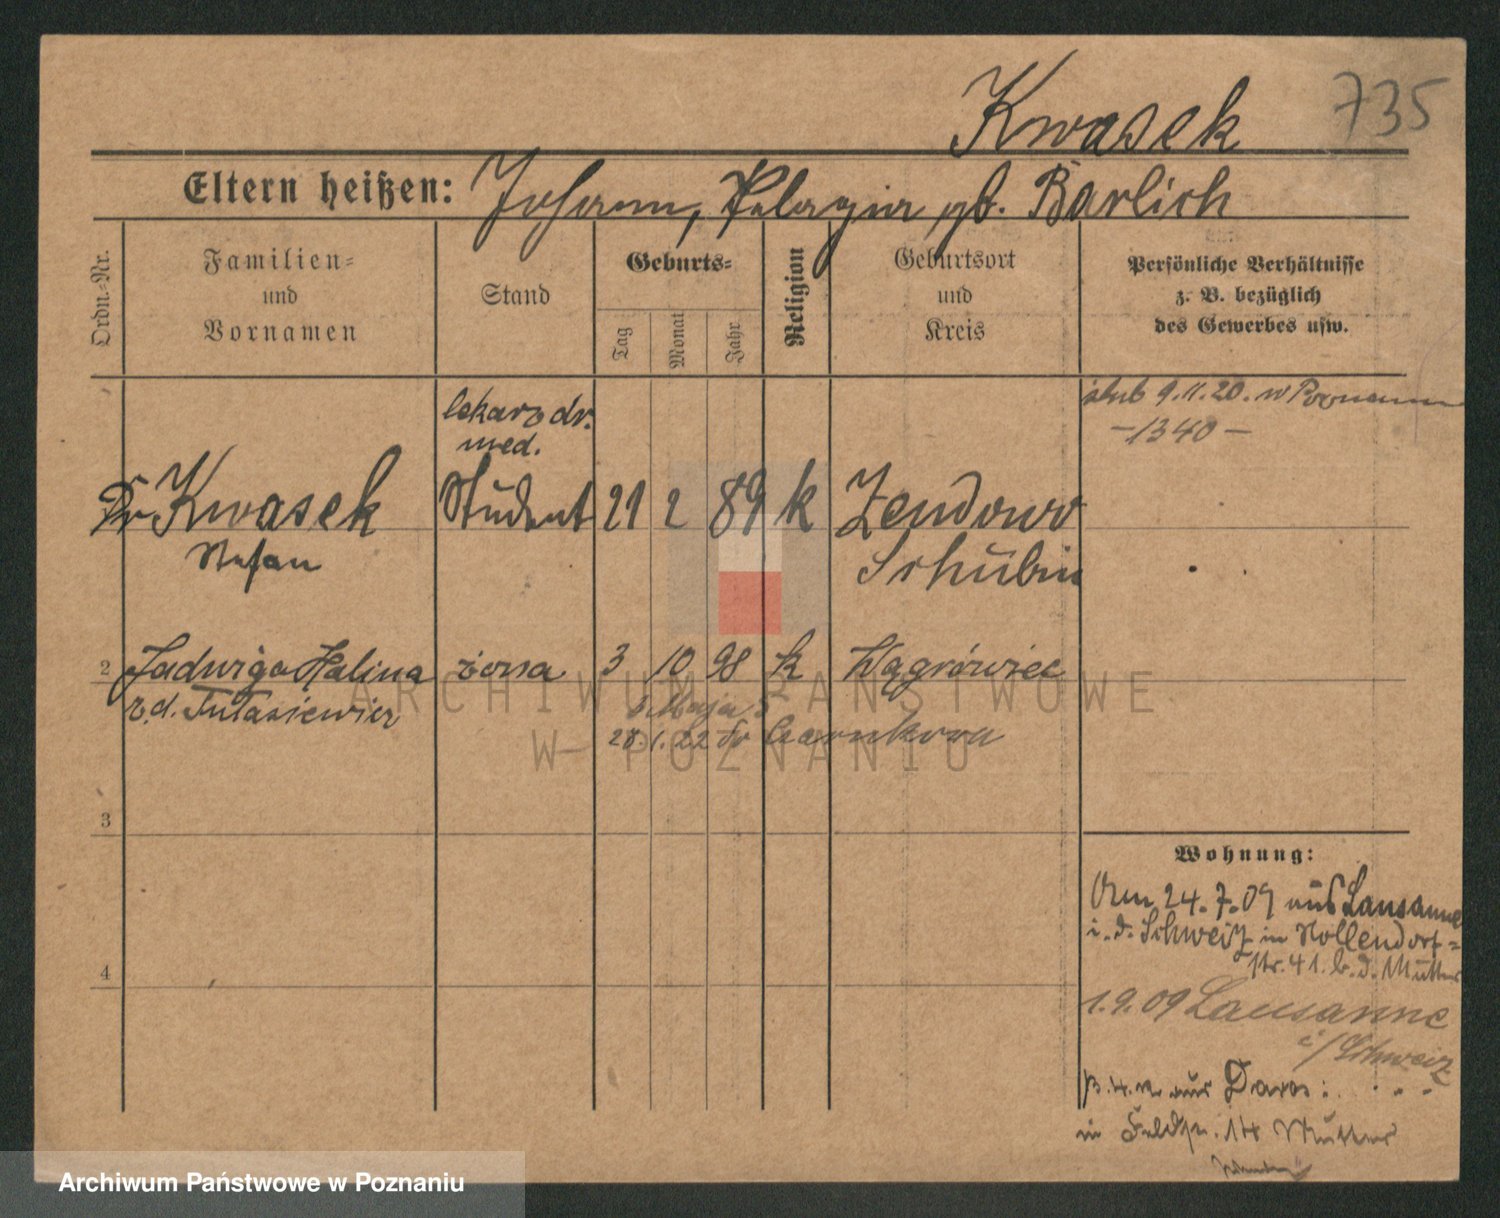 Kwasek 735
Eltern heißen: Johann, Pelagia gb. Barlich
Ordn.-Nr.
Familien-
und
Vornamen
Stand
Geburts-
Tag
Monat
Jahr
Religion
Geburtsort
und
Kreis
Persönliche Verhältnisse
z. B. bezüglich
des Gewerbes usw.
lekarz dr.
med.
ślub 9.11.20. w Poznaniu
-1340-
Dr Kwasek Student 21 2 89 k Zendowo
Stefan Schubin
2 Jadwiga Halina żona 3 10 98 k Wągrówiec
z.d.
3 Maja 5
28.1.22 do Czarnkowa
3
4
Wohnung:
Am 24.7.09 aus Lausanne
i.d. Schweiz in Nollendorf-
str. 41. b. d. Mutter
1.9.09 Lausanne
i/Schweiz
aus Davos
in 14 Mutter
ARCHIWUM PAŃSTWOWE
W POZNANIU
Archiwum Państwowe w Poznaniu